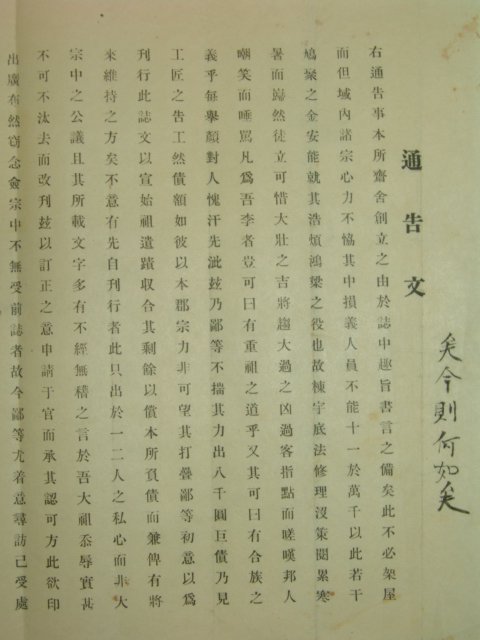 矣今則何如矣
通告文
右通告事本所齋舍創立之由於誌中趣旨書言之備矣此不必架屋
而但域內諸宗心力不恊其中損義人員不能十一於萬千以此若干
鳩聚之金安能就其浩煩鴻梁之役也故棟宇底法修理沒策閱累寒
暑而巋然徒立可惜大壯之吉將趨大過之凶過客指點而嗟嘆邦人
嘲笑而唾罵凡爲吾李者豈可曰有重祖之道乎又其可曰有合族之
義乎每擧顔對人愧汗先泚玆乃鄙等不揣其力出八千圓巨債乃見
工匠之告工然債額如彼以本郡宗力非可望其打疊鄙等初意以爲
刊行此誌文以宣始祖遺蹟收合其剩餘以償本所負債而兼俾有將
來維持之方矣不意有先自刊行者此只出於一二人之私心而非大
宗中之公議且其所載文字多有不經無稽之言於吾大祖忝辱實甚
不可不汰去而改刊玆以訂正之意申請于官而承其認可方此欲印
出廣布然窃念僉宗中不無受前誌者故今鄙等尤着意尋訪已受處